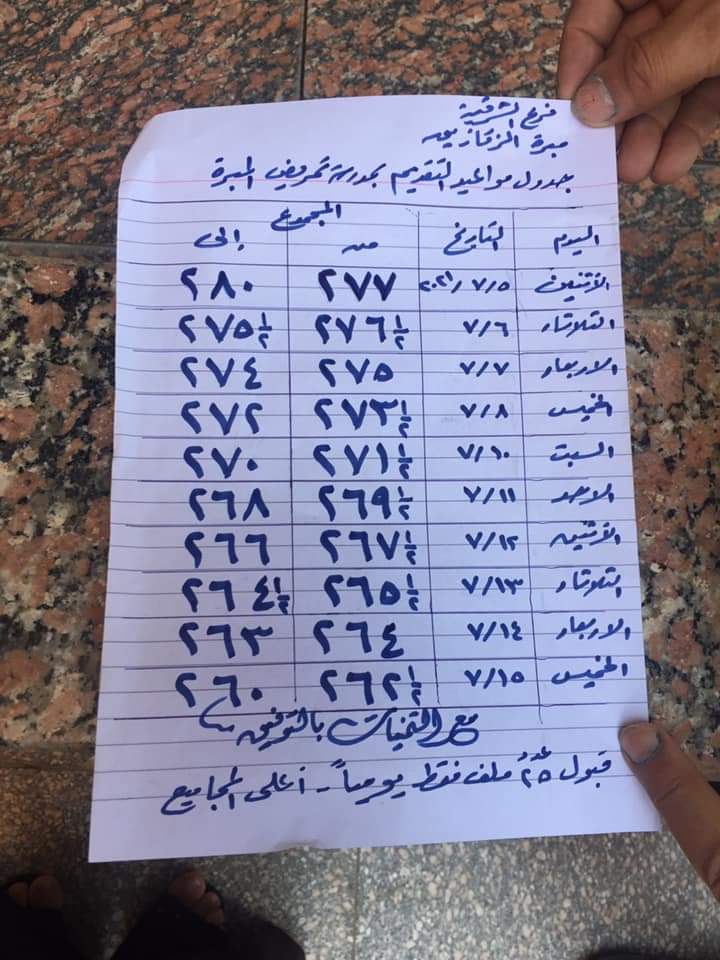 فرع الشرقية
مبرة الزقازيق
جدول مواعيد التقديم بمدرسة تمريض المبرة
اليوم التاريخ المجموع
من إلى
الأثنين ٢٠٢١/٧/٥ ٢٧٧ ٢٨٠
الثلاثاء ٧/٦ ٢٧٦½ ٢٧٥½
الاربعاء ٧/٧ ٢٧٥ ٢٧٤
الخميس ٧/٨ ٢٧٣½ ٢٧٢
السبت ٧/١٠ ٢٧١½ ٢٧٠
الاحد ٧/١١ ٢٦٩½ ٢٦٨
الأثنين ٧/١٢ ٢٦٧½ ٢٦٦
الثلاثاء ٧/١٣ ٢٦٥½ ٢٦٤½
الاربعاء ٧/١٤ ٢٦٤ ٢٦٣
الخميس ٧/١٥ ٢٦٢½ ٢٦٠
مع التمنيات بالتوفيق
قبول عدد ٢٥ ملف فقط يومياً - أعلى المجاميع